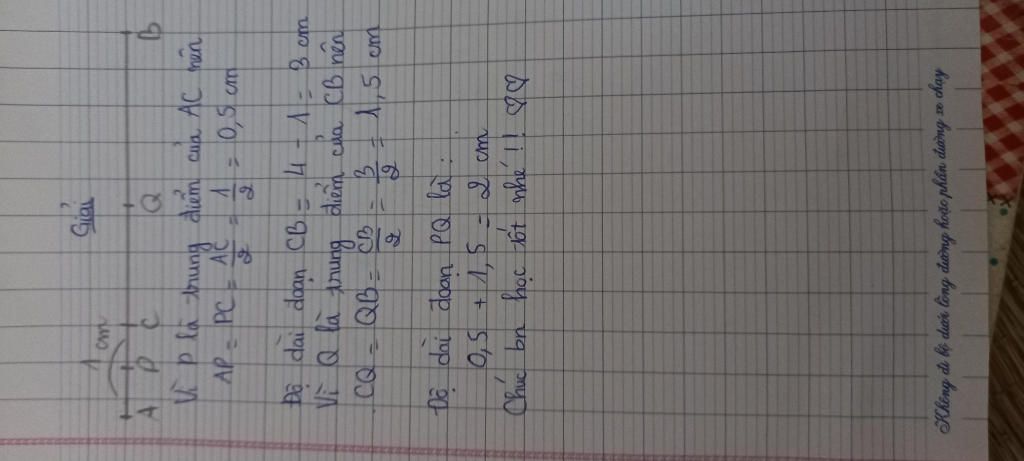 Giải
1 cm
A P C Q B
Vì P là trung điểm của AC nên
AP = PC = AC/2 = 1/2 = 0,5 cm
Độ dài đoạn CB = 4 - 1 = 3 cm
Vì Q là trung điểm của CB nên
CQ = QB = CB/2 = 3/2 = 1,5 cm
Độ dài đoạn PQ là:
0,5 + 1,5 = 2 cm
Chúc bn học tốt nhé!! ♡♡
Không đi bộ dưới lòng đường hoặc phần đường xe chạy